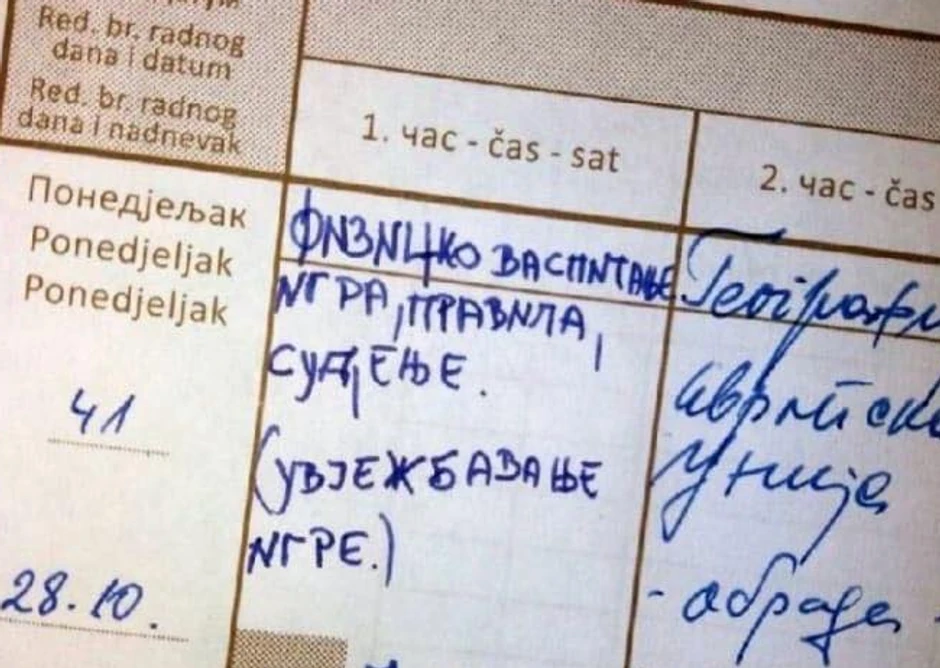 Red. br. radnog
dana i datum
Red. br. radnog
dana i nadnevak
1. час - čas - sat
2. час - čas
Понедјељак
Ponedjeljak
Ponedjeljak
41
28.10.
ФИЗИЧКО ВАСПИТАЊЕ
ИГРА, ПРАВИЛА,
СУЂЕЊЕ.
(УВЈЕЖБАВАЊЕ
ИГРЕ.)
Географи
Европска
Унија
- обрада -